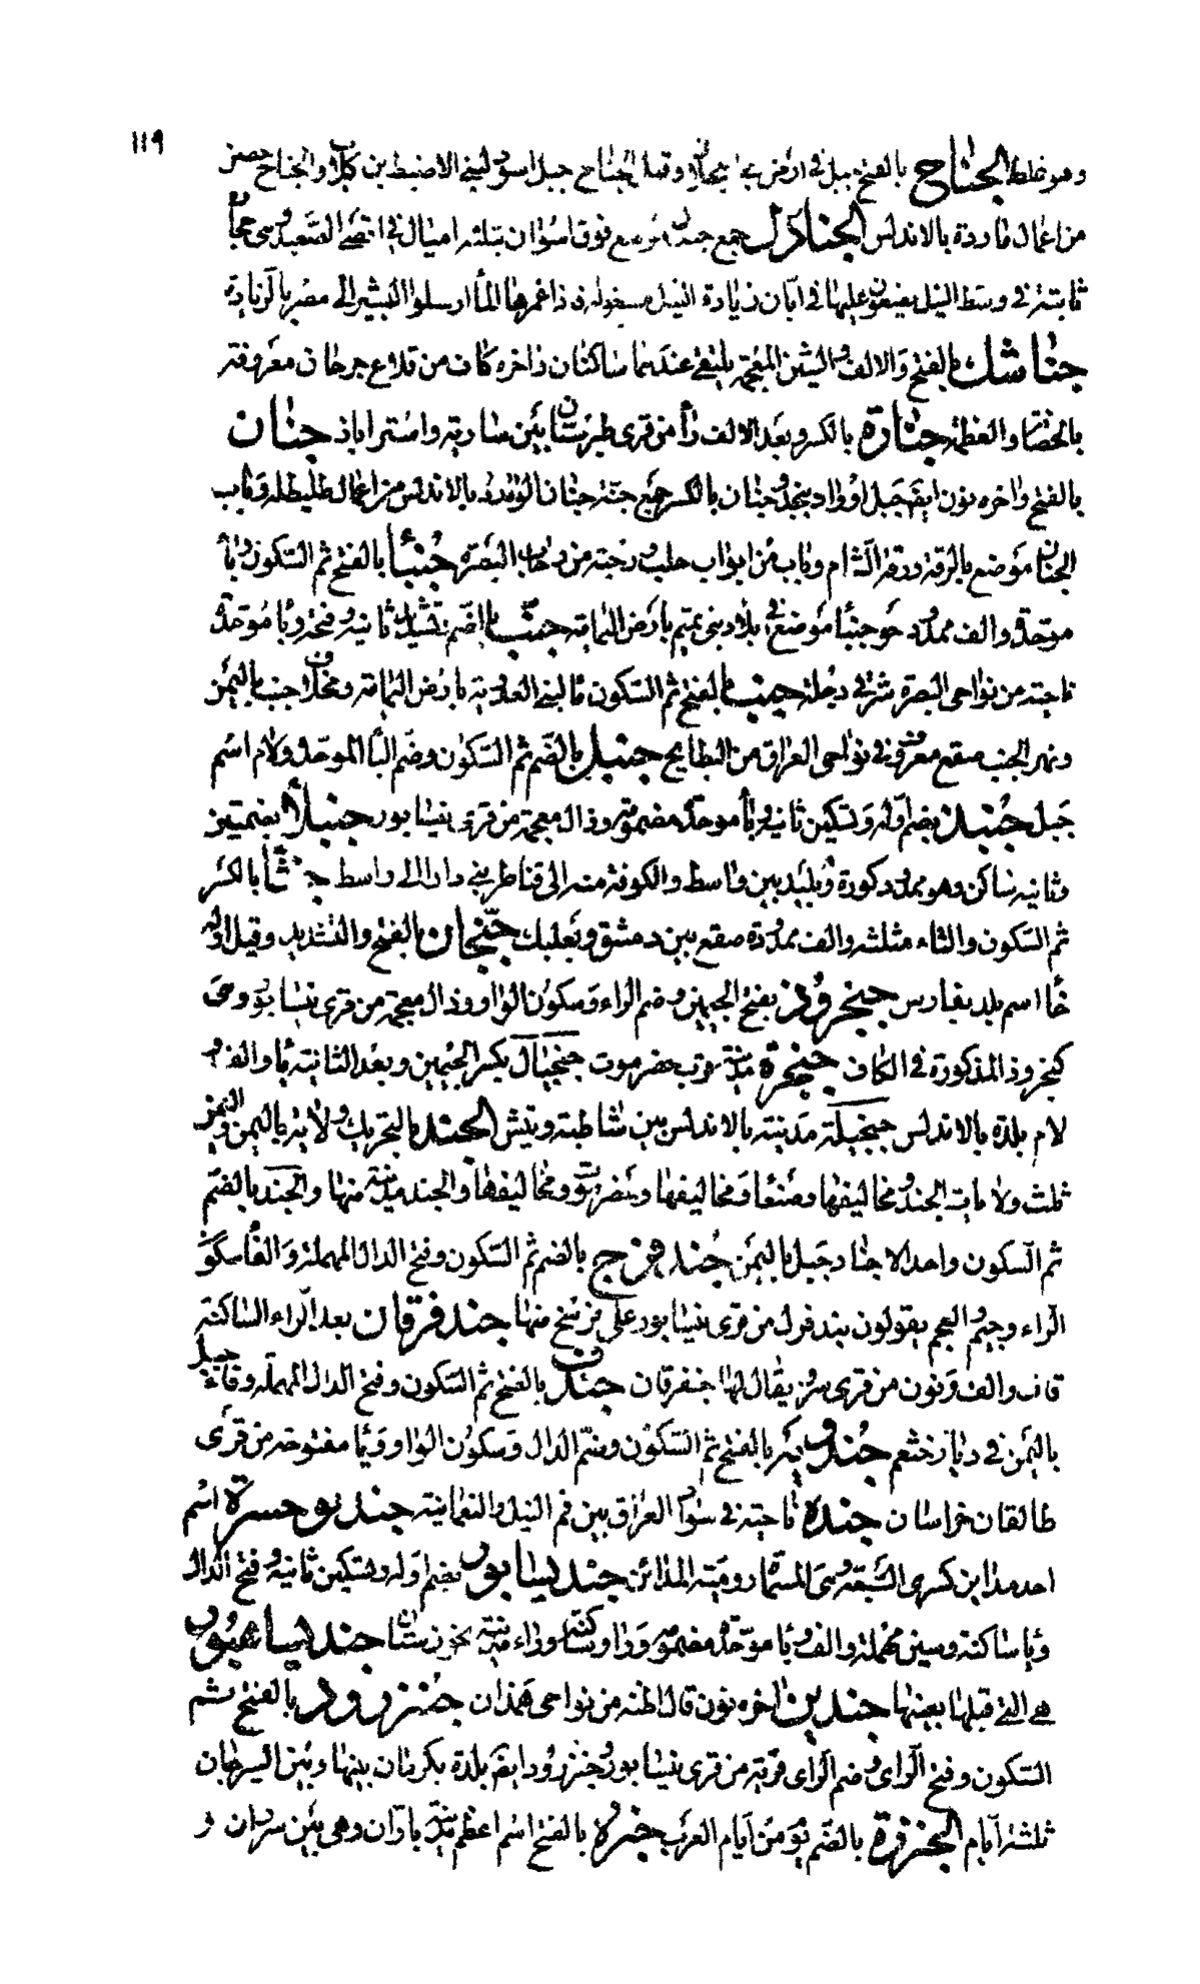 ١١٩
وهو غلط الجناح بالفتح جبل في ارض بني العجلان وقيل الجناح جبل اسود لبني الاضبط بن كلاب والجناح حصن
من اعمال ماردة بالاندلس الجنادل جمع جندل موضع فوق اسوان بثلثه اميال في اقصى الصعيد وهي حجارة
ثابتة في وسط النيل يضعون عليها في ابان زيادة النيل فاذا غمرها الماء ارسلوا البشير الى مصر بالزيادة
جناشك بالفتح والالف والشين المعجمة يلتقي عندهما ساكنان واخره كاف من قلاع جرجان معروفة
بالحصانة والعظمة جنارة بالكسر وبعد الالف راء من قرى طبرستان بين سارية واستراباذ جنان
بالفتح واخره نون ايضا جبل او واد بنجد وجنان بالكسر جمع جنة جنان الورد بالاندلس من اعمال طليطلة وباب
الجنان موضع بالرقة ورقة الشام وباب من ابواب حلب ورحبة من رحاب البصرة جنبأ بالفتح ثم السكون وباء
موحدة والف ممدود جو جنبأ موضع في بلاد بني تميم بارض اليمامة جنب بالضم تشديد ثانيه وفتحه وباء موحدة
ناحية من نواحي البصرة شرقي دجلة جنب بالفتح ثم السكون ماء لبني العدوية بارض اليمامة ومخلاف جنب باليمن
ونهر الجنب صقع معروف في نواحي العراق من البطايح جنبل بالضم ثم السكون وضم الباء الموحدة ولام اسم
جبل جنبذ بضم اوله وتسكين ثانيه وباء موحدة مضمومة وذال معجمة من قرى نيشابور جنبلأ بضمتين
وثانيه ساكن وهو ممدود كورة وبليد بين واسط والكوفة منه الى قناطر بني دارا الى واسط جنثأ بالكسر
ثم السكون والثاء مثلثه والف ممدودة صقع بين دمشق وبعلبك جنجان بالفتح والتشديد وقيل اوله
خاء اسم بلد بفارس جنجروذ بفتح الجيمين وضم الراء وسكون الواو وذال معجمة من قرى نيشابور وهي
كنجروذ المذكورة في الكاف جنجرة مدينة قرب حضرموت جنجيال بكسر الجيمين وبعد الثانية ياء والف و
لام بلدة بالاندلس جنجيلة مدينة بالاندلس بين شاطبة وبنش الجند بالتحريك ولاية باليمن واليمن
ثلث ولايات الجند ومخاليفها وصنعا ومخاليفها وحضرموت ومخاليفها والجند مدينة منها والجند بالضم
ثم السكون واحد الاجناد جبل باليمن جند فرج بالضم ثم السكون وفتح الدال المهملة والفاء سكون
الراء وجيم والعجم يقولون بندفرك من قرى نيشابور على فرسخ منها جندفرقان بعد الراء الساكنة
قاف والف ونون من قرى مرو يقال لها جنفرقان جندف بالفتح ثم السكون وفتح الدال المهملة وفاء جبل
باليمن في ديار خثعم جندويه بالفتح ثم السكون وضم الدال وسكون الواو وياء مفتوحة من قرى
طالقان خراسان جنده ناحية في سواد العراق بين فم النيل والنعمانية جنديوخسرة اسم
احد مداين كسرى السبعة وهي المسماة رومية المدائن جنديسابور بضم اوله وتسكين ثانيه وفتح الدال
وياء ساكنة وسين مهملة والف وباء موحدة مضمومة وواو وراء مدينة بخوزستان جنديشاهبور
هي التي قبلها بعينها جندين اخره نون قال اظنه من نواحي همذان جنزرود بالفتح ثم
السكون وفتح الزاي وضم الراي قرية من قرى نيشابور وجنزرود ايضا بلدة بكرمان بينها وبين السيرجان
ثلثة ايام الجنزرة بالضم يوم من ايام العرب جنزة بالفتح اسم اعظم مدينة باران وهي بين شروان و